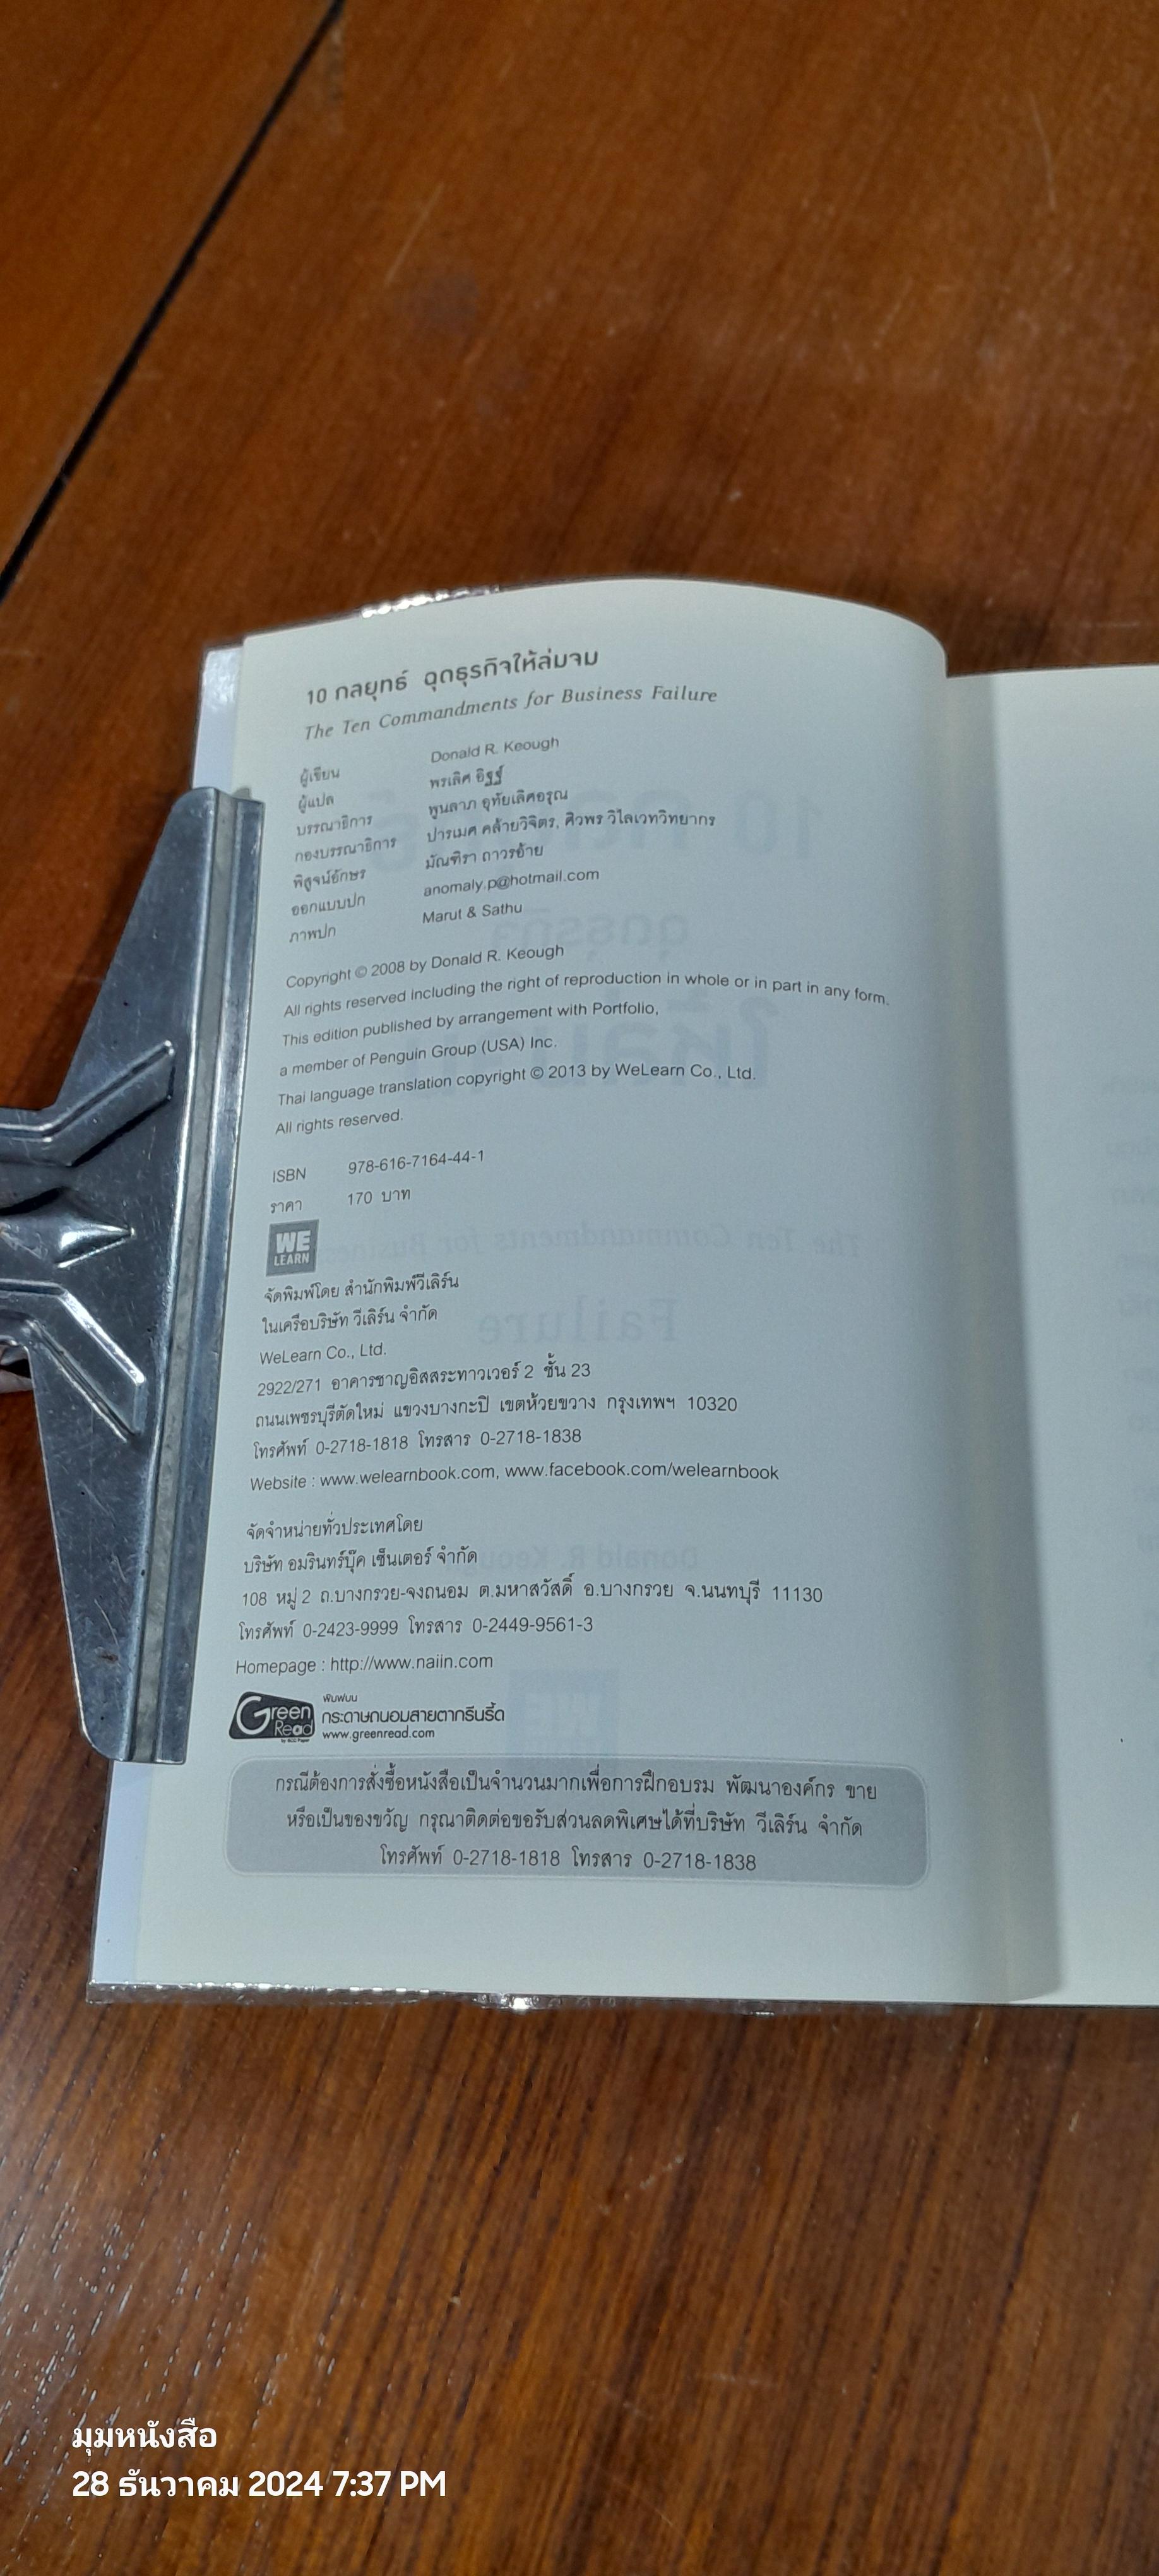 10 กลยุทธ์ ฉุดธุรกิจให้ล่มจม
The Ten Commandments for Business Failure
ผู้เขียน Donald R. Keough
ผู้แปล พรเลิศ อิฐฐ์
บรรณาธิการ พูนลาภ อุทัยเลิศอรุณ
กองบรรณาธิการ ปารเมศ คล้ายวิจิตร, ศิวพร วิไลเวทวิทยากร
พิสูจน์อักษร มัณฑิรา ถาวรอ้าย
ออกแบบปก anomaly.p@hotmail.com
ภาพปก Marut & Sathu
Copyright © 2008 by Donald R. Keough
All rights reserved including the right of reproduction in whole or in part in any form.
This edition published by arrangement with Portfolio,
a member of Penguin Group (USA) Inc.
Thai language translation copyright © 2013 by WeLearn Co., Ltd.
All rights reserved.
ISBN 978-616-7164-44-1
ราคา 170 บาท
WE
LEARN
จัดพิมพ์โดย สำนักพิมพ์วีเลิร์น
ในเครือบริษัท วีเลิร์น จำกัด
WeLearn Co., Ltd.
2922/271 อาคารชาญอิสสระทาวเวอร์ 2 ชั้น 23
ถนนเพชรบุรีตัดใหม่ แขวงบางกะปิ เขตห้วยขวาง กรุงเทพฯ 10320
โทรศัพท์ 0-2718-1818 โทรสาร 0-2718-1838
Website : www.welearnbook.com, www.facebook.com/welearnbook
จัดจำหน่ายทั่วประเทศโดย
บริษัท อมรินทร์บุ๊ค เซ็นเตอร์ จำกัด
108 หมู่ 2 ถ.บางกรวย-จงถนอม ต.มหาสวัสดิ์ อ.บางกรวย จ.นนทบุรี 11130
โทรศัพท์ 0-2423-9999 โทรสาร 0-2449-9561-3
Homepage : http://www.naiin.com
Green Read
พิมพ์บน
กระดาษถนอมสายตากรีนรี้ด
www.greenread.com
กรณีต้องการสั่งซื้อหนังสือเป็นจำนวนมากเพื่อการฝึกอบรม พัฒนาองค์กร ขาย
หรือเป็นของขวัญ กรุณาติดต่อขอรับส่วนลดพิเศษได้ที่บริษัท วีเลิร์น จำกัด
โทรศัพท์ 0-2718-1818 โทรสาร 0-2718-1838
มุมหนังสือ
28 ธันวาคม 2024 7:37 PM